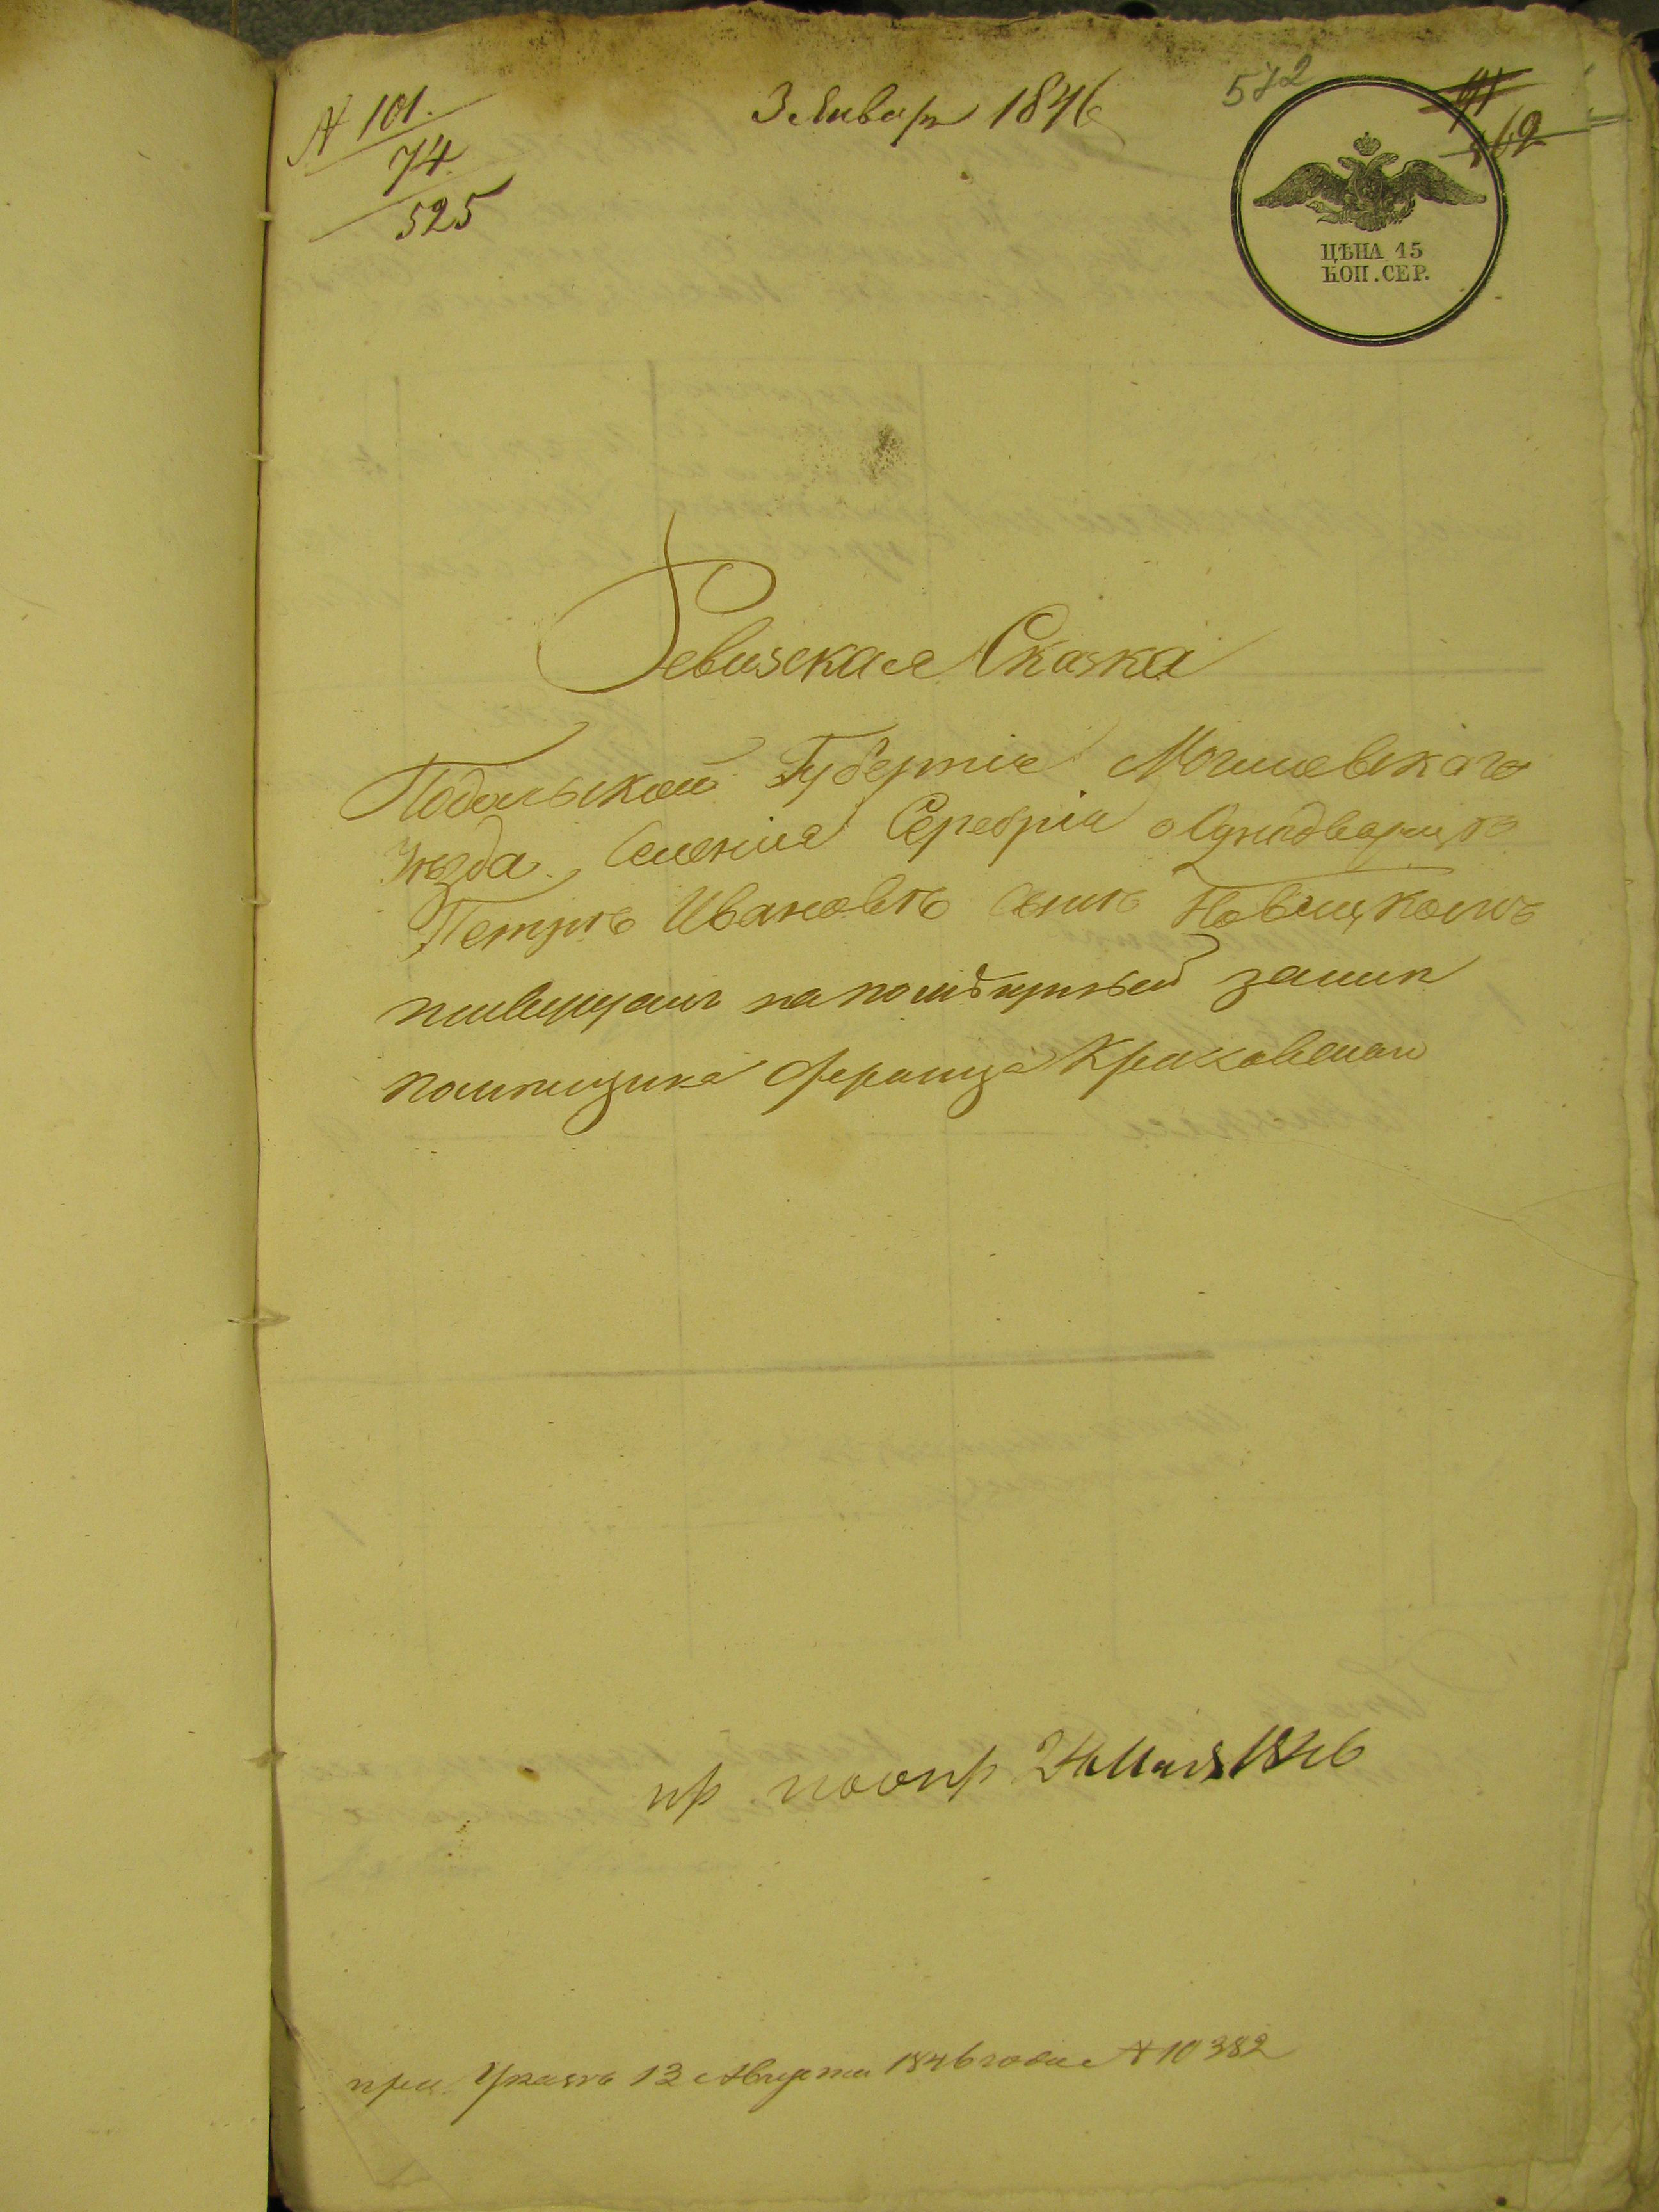 № 101.
74.
525
3 Январ 1846
572
562
ЦѢНА 15
КОП. СЕР.
Ревизская Сказка
Подольской Губерніи Могилевскаго
Уѣзда. Селенія Серебріи о Однодворцѣ
Петрѣ Ивановѣ сынѣ Новицкомъ
живущаго на помѣщичьей земли
помѣщика Франца
пр 24 Мая 1846
при Указѣ 13 Августа 1846 года № 10382